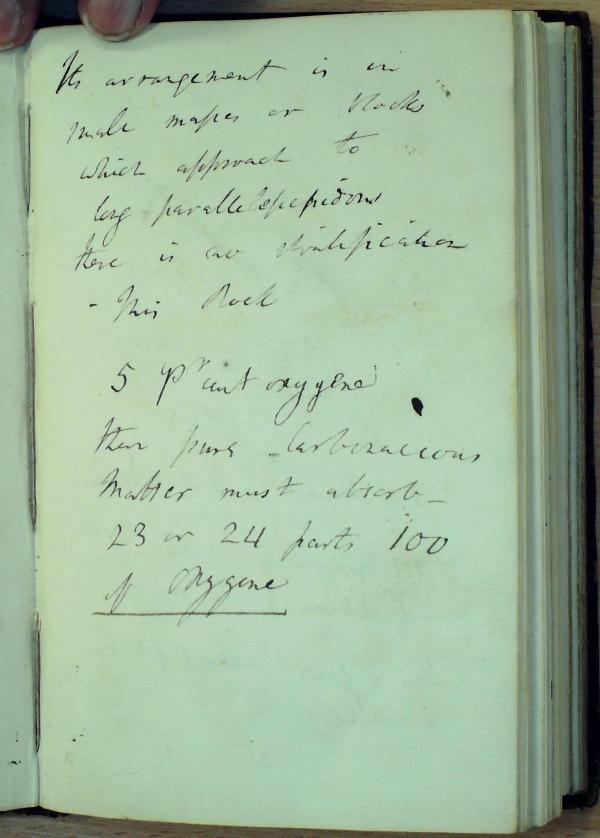 Its arrangement is in
small masses or blocks
which approach to
long parallelepipedons
there is no stratification
- This Rock
5 Pr cent oxygene
then pure Carbonaceous
Matter must absorb -
23 or 24 parts 100
of Oxygene